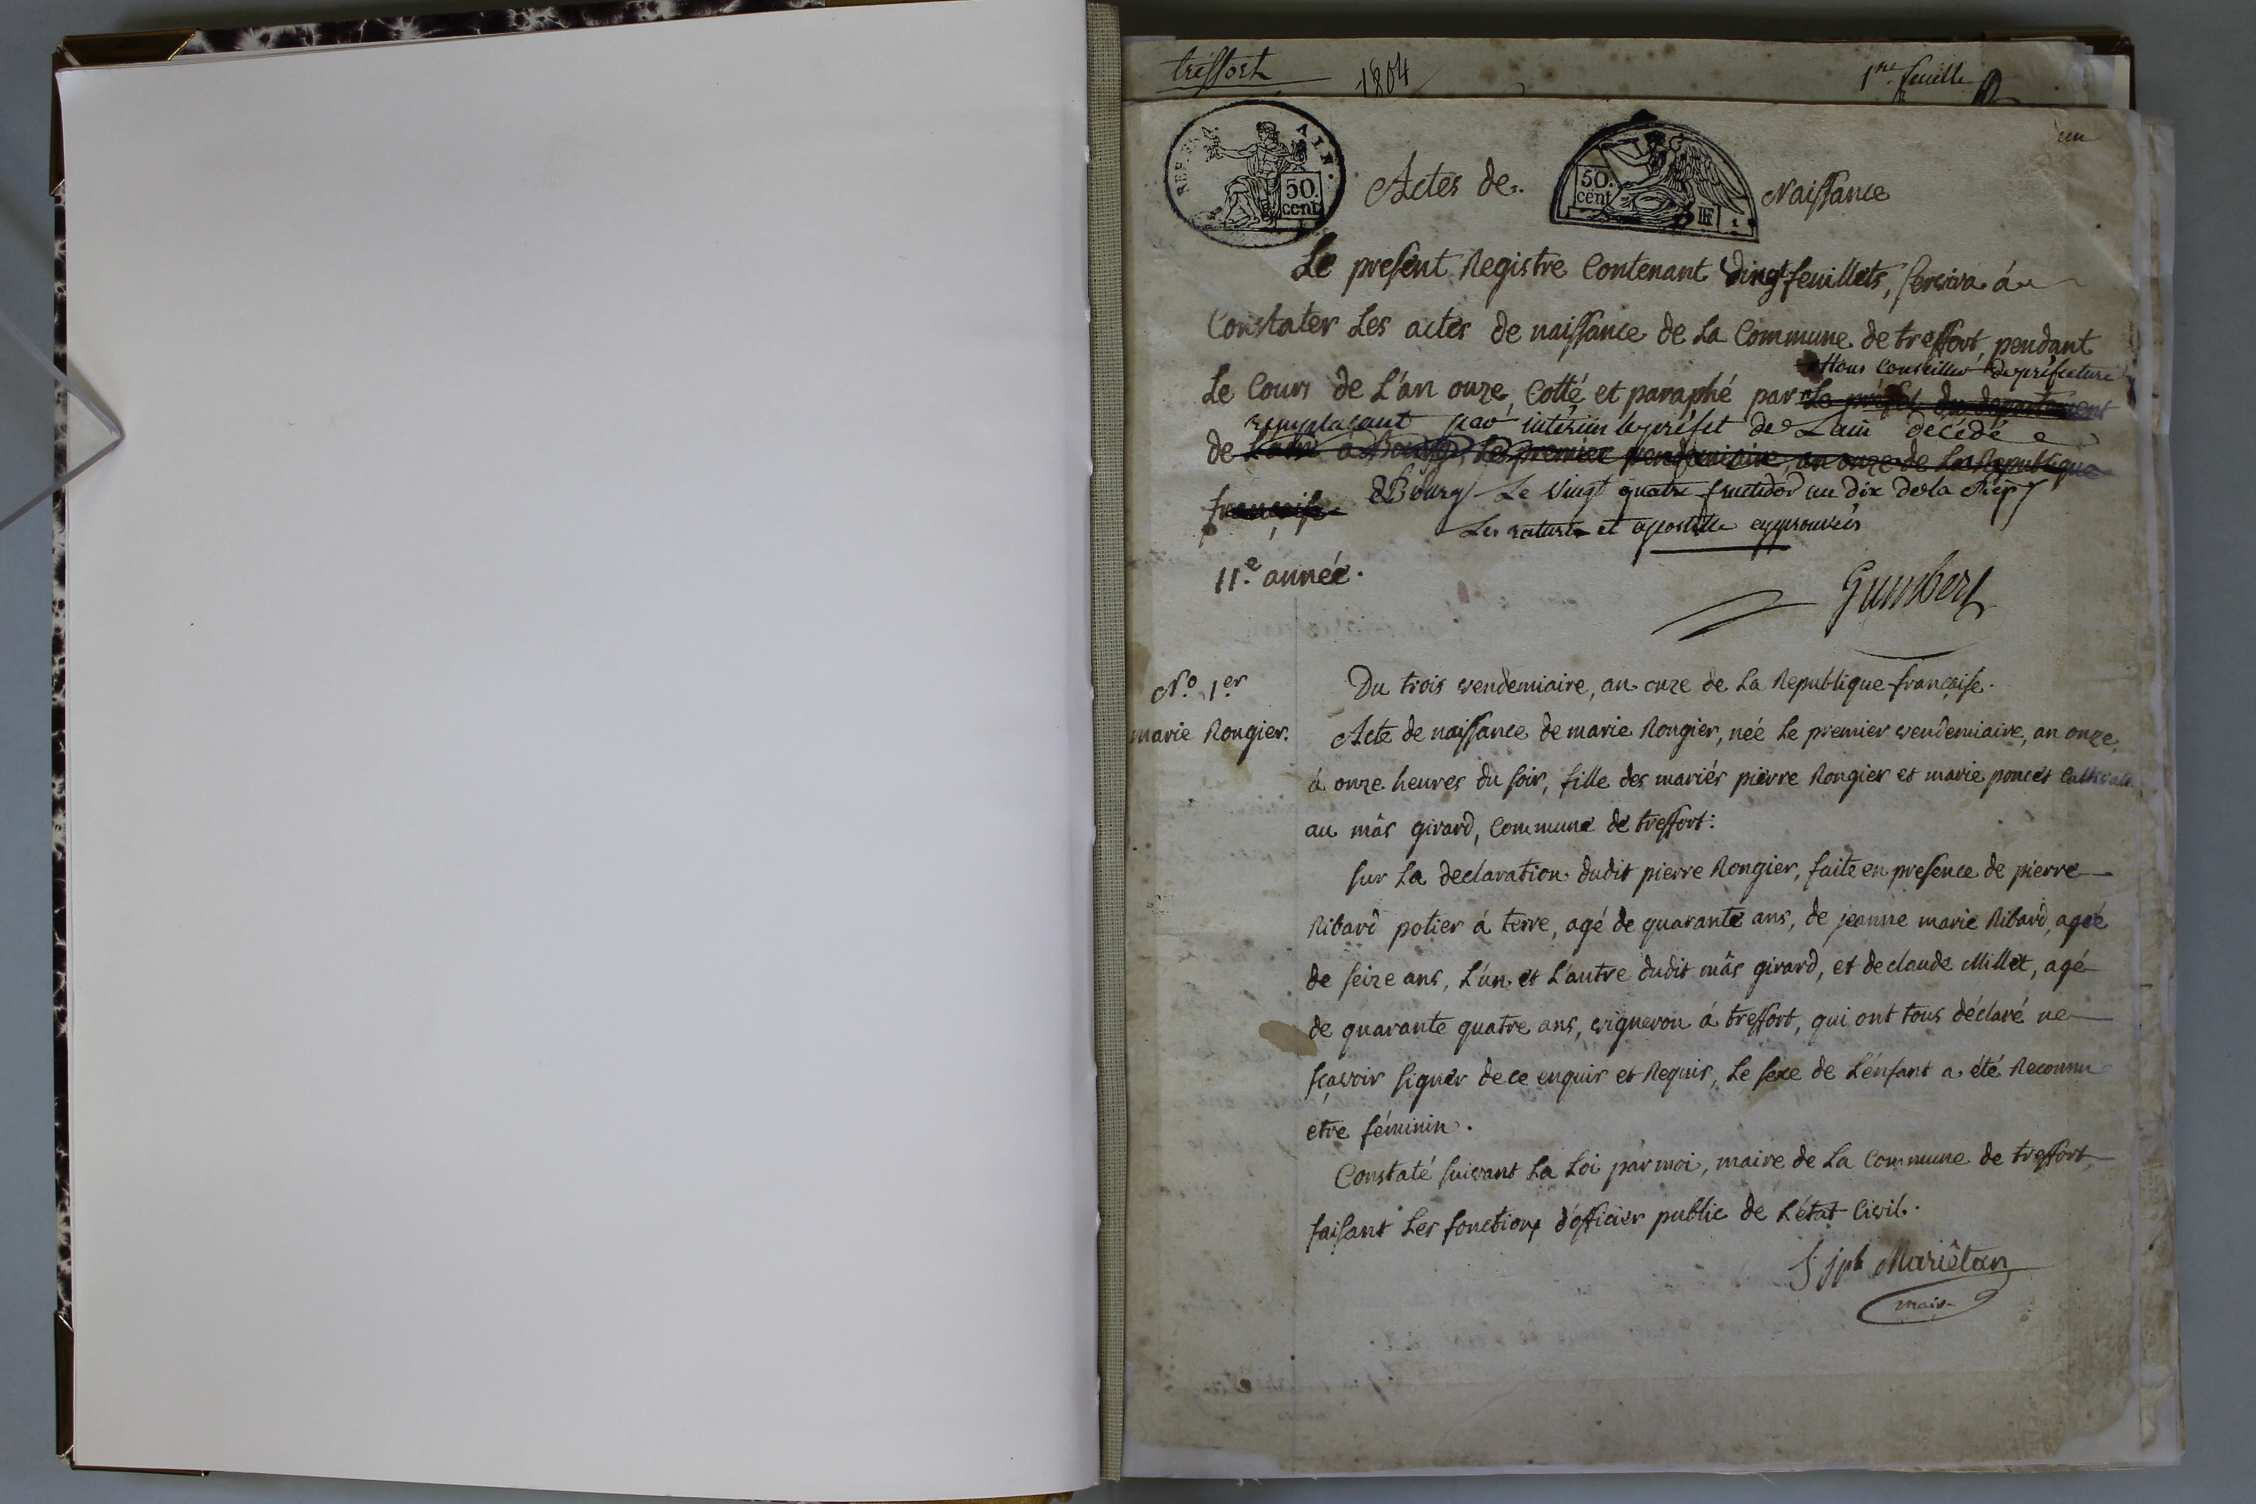 treffort
1804
1re feuille
un
REP. FRA.
ALE.
50.
cent.
Actes de
50.
cent.
RF
Naissance
Le present Registre Contenant vingt feuillets, servira á
Constater Les actes de naissance de La Commune de treffort, pendant
Nous Conseiller de préfecture
Le Cours de L'an onze, Cotté et paraphé par Le préfet du departement
remplaçant par interim le préfet de Lain décédé
de L'ain a Bourg, Le premier vendemiaire, an onze de La Republique
française
ABourg Le Vingt quatre fructidor an Dix de la Rep
Les ratures et apostille approuvées
11.e année.
Gumbert
N.o 1.er
marie Rongier.
Du trois vendemiaire, an onze de La Republique française.
Acte de naissance de marie Rongier, née Le premier vendemiaire, an onze,
á onze heures du soir, fille des mariés pierre Rongier et marie poncet
au mâs girard, Commune de treffort:
sur La declaration dudit pierre Rongier, faite en presence de pierre
Ribard potier á terre, agé de quarante ans, de jeanne marie Ribard, agée
de seize ans, L'un et L'autre dudit mâs girard, et de claude Millet, agé
de quarante quatre ans, vigneron á treffort, qui ont tous déclaré ne
sçavoir signer de ce enquis et Requis, Le sexe de L'énfant a été Reconnu
etre féminin.
Constaté suivant La Loi par moi, maire de La Commune de treffort,
faisant Les fonctions d'officier public de L'état Civil.
jph Mariêtan
maire